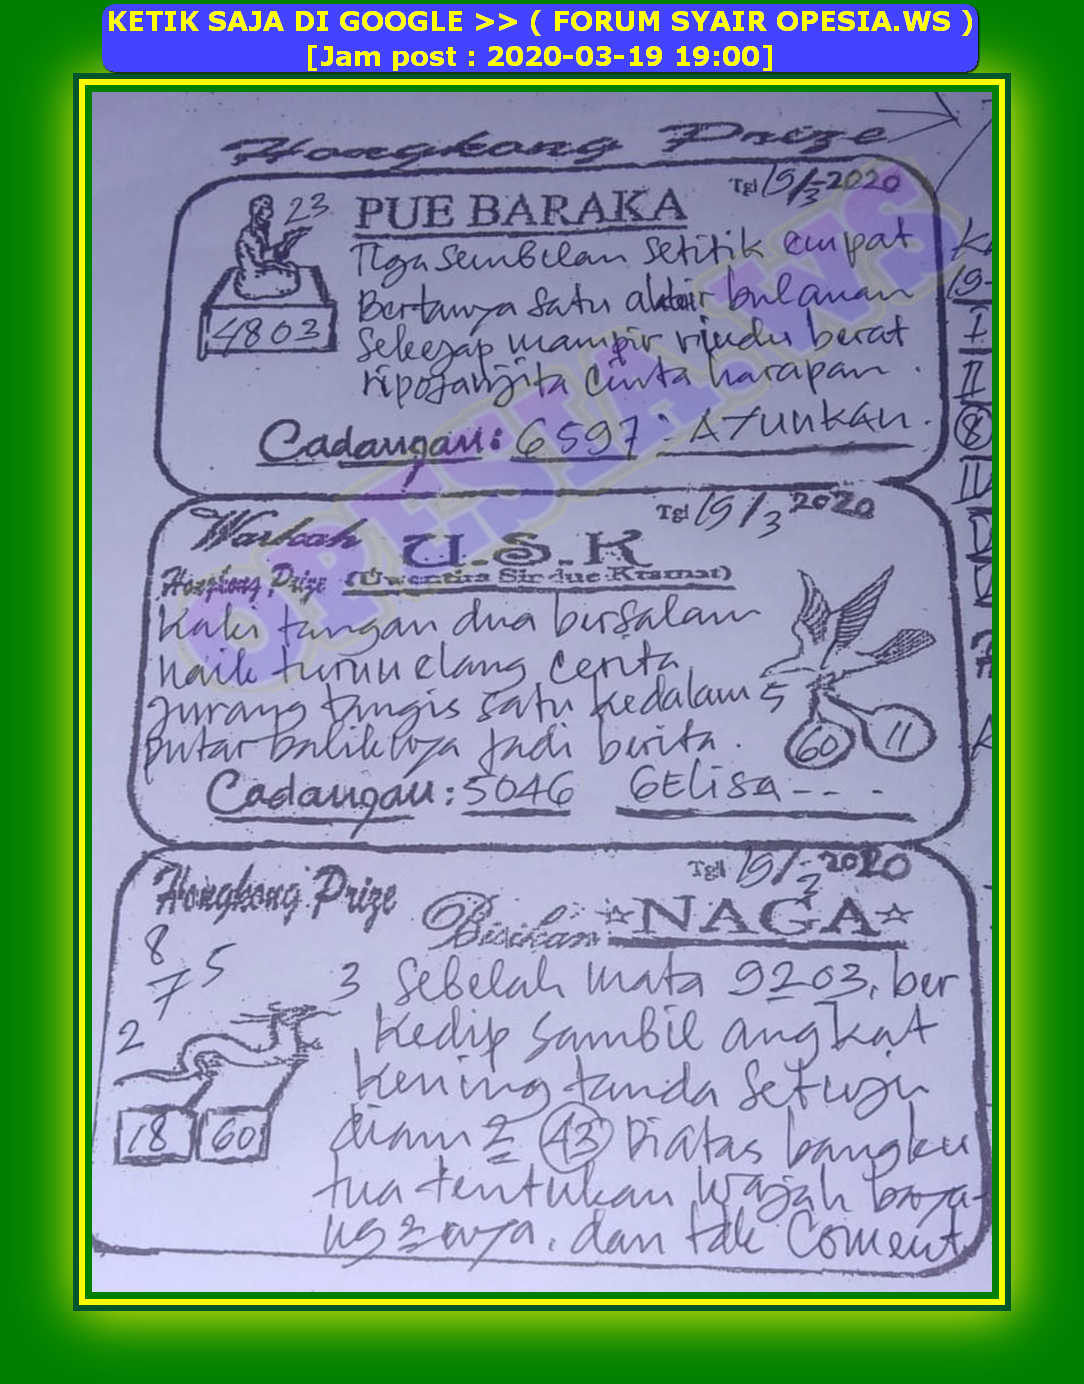 KETIK SAJA DI GOOGLE >> ( FORUM SYAIR OPESIA.WS )
[Jam post : 2020-03-19 19:00]
Hongkong Prize
Tgl 19/3-2020
23
PUE BARAKA
4803
Tiga sembilan setitik empat
Bertanya satu akhir bulanan
Sekejap mampir rindu berat
cinta harapan.
Cadangan: 6597 : AYUNKAN.
OPESIA.WS
Tgl 19/3 2020
Warkah U.S.K
Hongkong Prize (Uwentira Sirdue Kramat)
Kaki tangan dua bersalam
naik turun elang cerita
jurang tangis satu kedalam 5
putar baliknya jadi berita.
60 11
Cadangan: 5046 GELISA - - -
Tgl 19/3-2020
Hongkong Prize
Bisikan ☆NAGA☆
8
7 5
3
2
18 60
Sebelah mata 9203, ber
kedip sambil angkat
kening tanda setuju
diam 2 (43) Diatas bangku
tua tentukan wajah baya-
ng2nya, dan tak Coment
K
19-
I
II
8